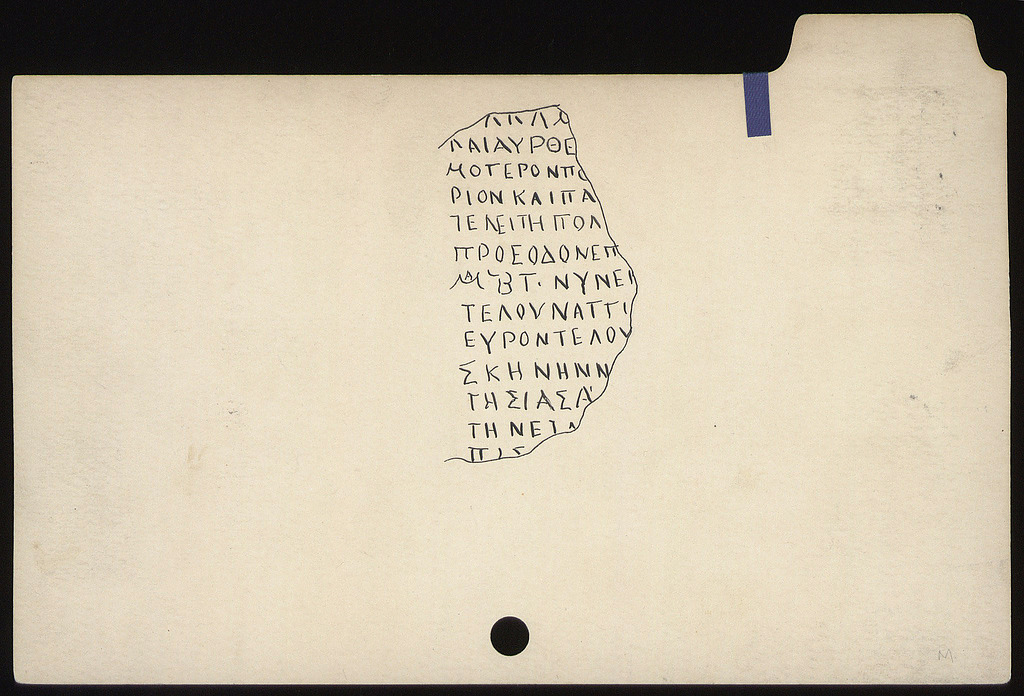 ΛΑΙΑΥΡΘΕ
ΜΟΤΕΡΟΝΠΟ
ΡΙΟΝΚΑΙΠΑ
ΤΕΛΕΙΤΗΠΟΛ
ΠΡΟΕΟΔΟΝΕΠ
ΒΤ·ΝΥΝΕΙ
ΤΕΛΟΥΝΑΤΤΙ
ΕΥΡΟΝΤΕΛΟΥ
ΣΚΗΝΗΝΝ
ΤΗΣΙΑΣΑ
ΤΗΝΕΙΛ
ΠΙΣ
M